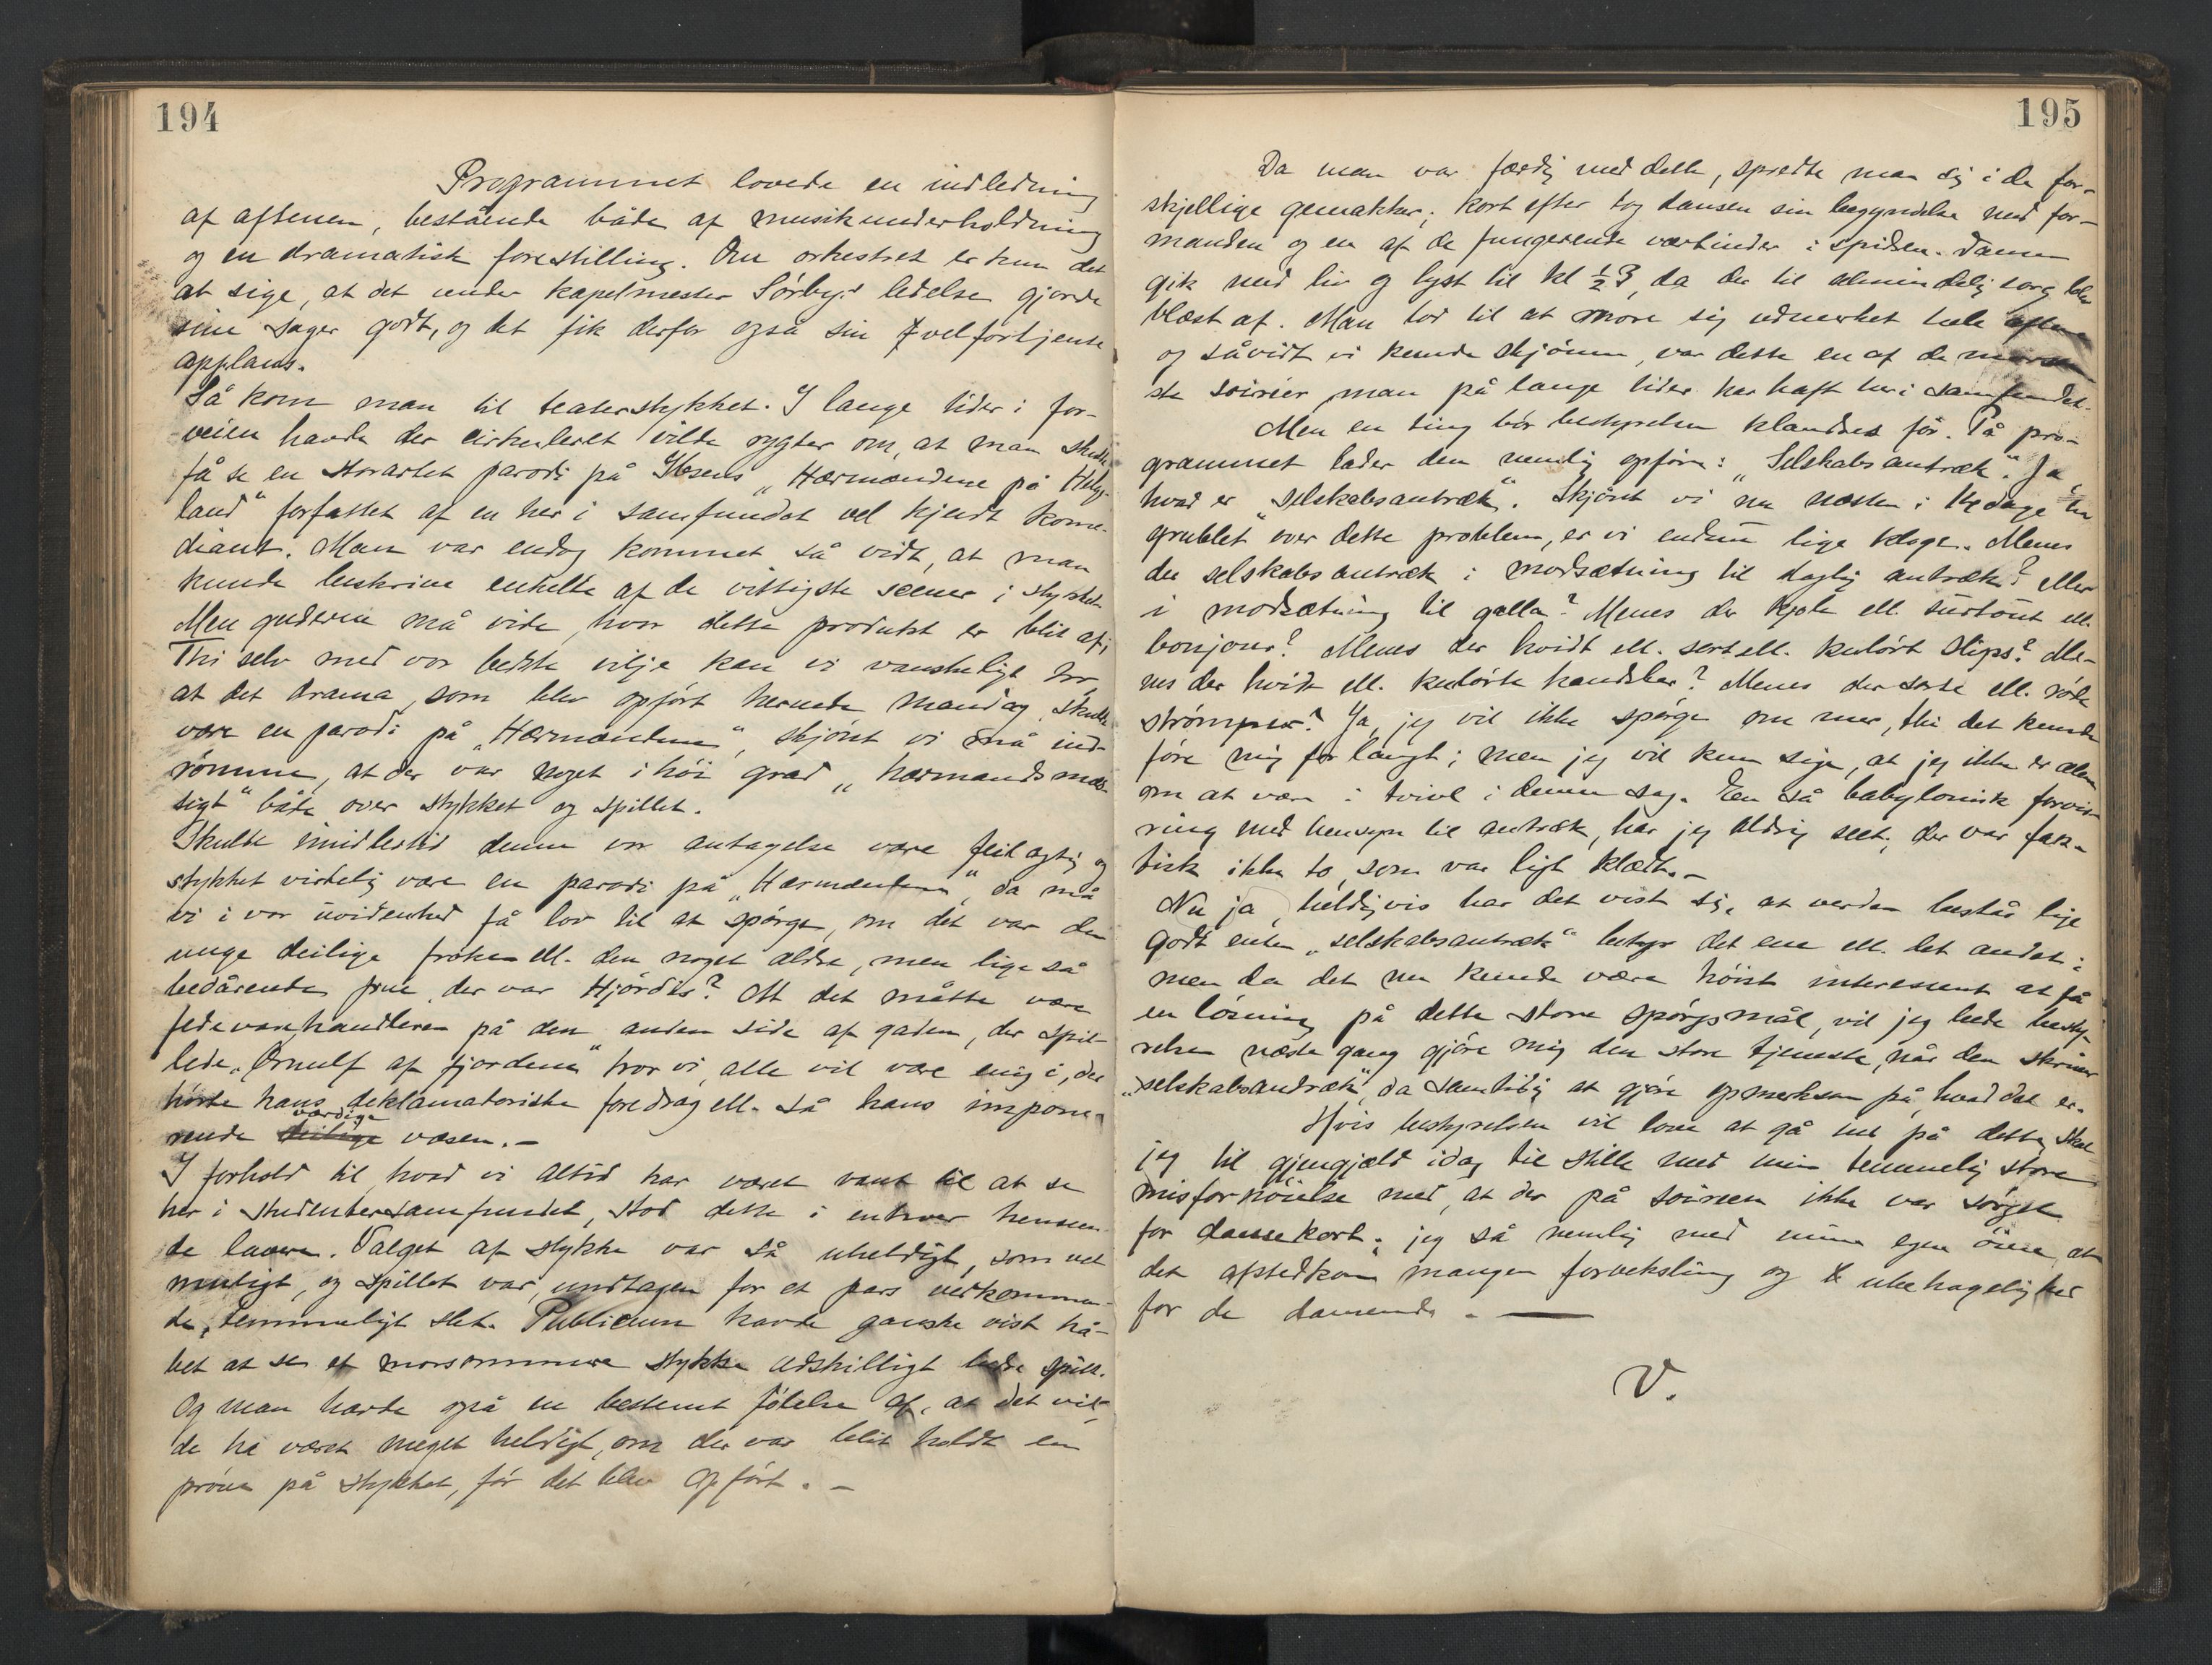 194
Programmet lovede en indledning
af aftenen, bestående både af musikunderholdning
og en dramatisk forestilling. Om orkestret er kun det
at sige, at det under kapelmester Sørby's ledelse gjorde
sine sager godt, og det fik derfor også sin velfortjente
applaus.
Så kom man til teaterstykket. I lange tider i for-
veien havde der cirkuleret vilde rygter om, at man skulde
få se en storartet parodi på Ibsens „Hærmændene på Helge-
land“ forfattet af en her i samfundet vel kjendt kome-
diant. Man var endog kommet så vidt, at man
kunde beskrive enkelte af de vittigste scener i stykket.
Men guderne må vide, hvor dette produkt er blit af;
Thi selv med vor bedste vilje kan vi vanskeligt tro,
at det drama, som blev opført hernede mandag, skulde
være en parodi på „Hærmændene“, skjønt vi må ind-
rømme, at der var noget i høi grad „hærmandsmæs-
sigt“ både over stykket og spillet.
Skulde imidlertid denne vor antagelse være feilagtig og
stykket virkelig være en parodi på „Hærmændene“, da må
vi i vor uvidenhed få lov til at spørge, om det var den
unge deilige frøken ell. den noget ældre, men lige så
bedårende frue, der var Hjørdis? At det måtte være
fedevarehandleren på den anden side af gaden, der spil-
lede „Ørnulf af fjordene“ tror vi, alle vil være enig i, der
hørte hans deklamatoriske foredrag ell. så hans impone-
rende deilige værdige væsen. -
I forhold til, hvad vi altid har været vant til at se
her i studentersamfundet, stod dette i enhver henseen-
de lavere. Valget af stykke var så uheldigt, som vel
muligt, og spillet var, undtagen for et pars vedkommen-
de, temmeligt slet. Publicum havde ganske vist hå-
bet at se et morsommere stykke adskilligt bedre spillt.
Og man havde også en bestemt følelse af, at det vil-
de ha været meget heldigt, om der var blit holdt en
prøve på stykket, før det blev opført. -
195
Da man var færdig med dette, spredte man sig i de for-
skjellige gemakker; kort efter tog dansen sin begyndelse med for-
manden og en af de fungerende værtinder i spidsen. Dansen
gik med liv og lyst til kl ½3, da der til almindelig sorg blev
blæst af. Man lod til at more sig udmerket hele aftenen
og såvidt vi kunde skjønne, var dette en af de morsom-
ste soiréer, man på lange tider har haft her i samfundet.
Men en ting bør bestyrelsen klandres før. På pro-
grammet lader den nemlig opføre: „Selskabsantræk“. Ja
hvad er „selskabsantræk“. Skjønt vi nu næsten i 14 dage har
grublet over dette problem, er vi endnu lige kloge. Menes
der selskabsantræk i modsætning til daglig antræk? eller
i modsætning til galla? Menes der kjole ell. surtout ell.
bonjour? Menes der hvidt ell. sort ell. kulørt slips? Me-
nes der hvide ell. kulørte handsker? Menes der sorte ell. røde
strømper? Ja, jeg vil ikke spørge om mer, thi det kunde
føre mig for langt; men jeg vil kun sige, at jeg ikke er alene
om at være i tvivl i denne sag. En så babylonisk forvir-
ring med hensyn til antræk, har jeg aldrig seet; der var fak-
tisk ikke to, som var ligt klædt. -
Nu ja, heldigvis har det vist sig, at verden består lige
godt enten „selskabsantræk“ betyr det ene ell. det andet;
men da det nu kunde være høist interessent at få
en løsning på dette store spørgsmål, vil jeg bede besty-
relsen næste gang gjøre mig den store tjeneste, når den skriver
„selskabsandræk“, da samtidig at gjøre opmerksom på, hvad det er.
Hvis bestyrelsen vil love at gå ind på dette, skal
jeg til gjengjæld idag tie stille med min temmelig store
misfornøielse med, at der på soireen ikke var sørget
for dansekort; jeg så nemlig med mine egne øine, at
det afstedkom mangen forveksling og ubehagelighed
for de dansende. —
V.